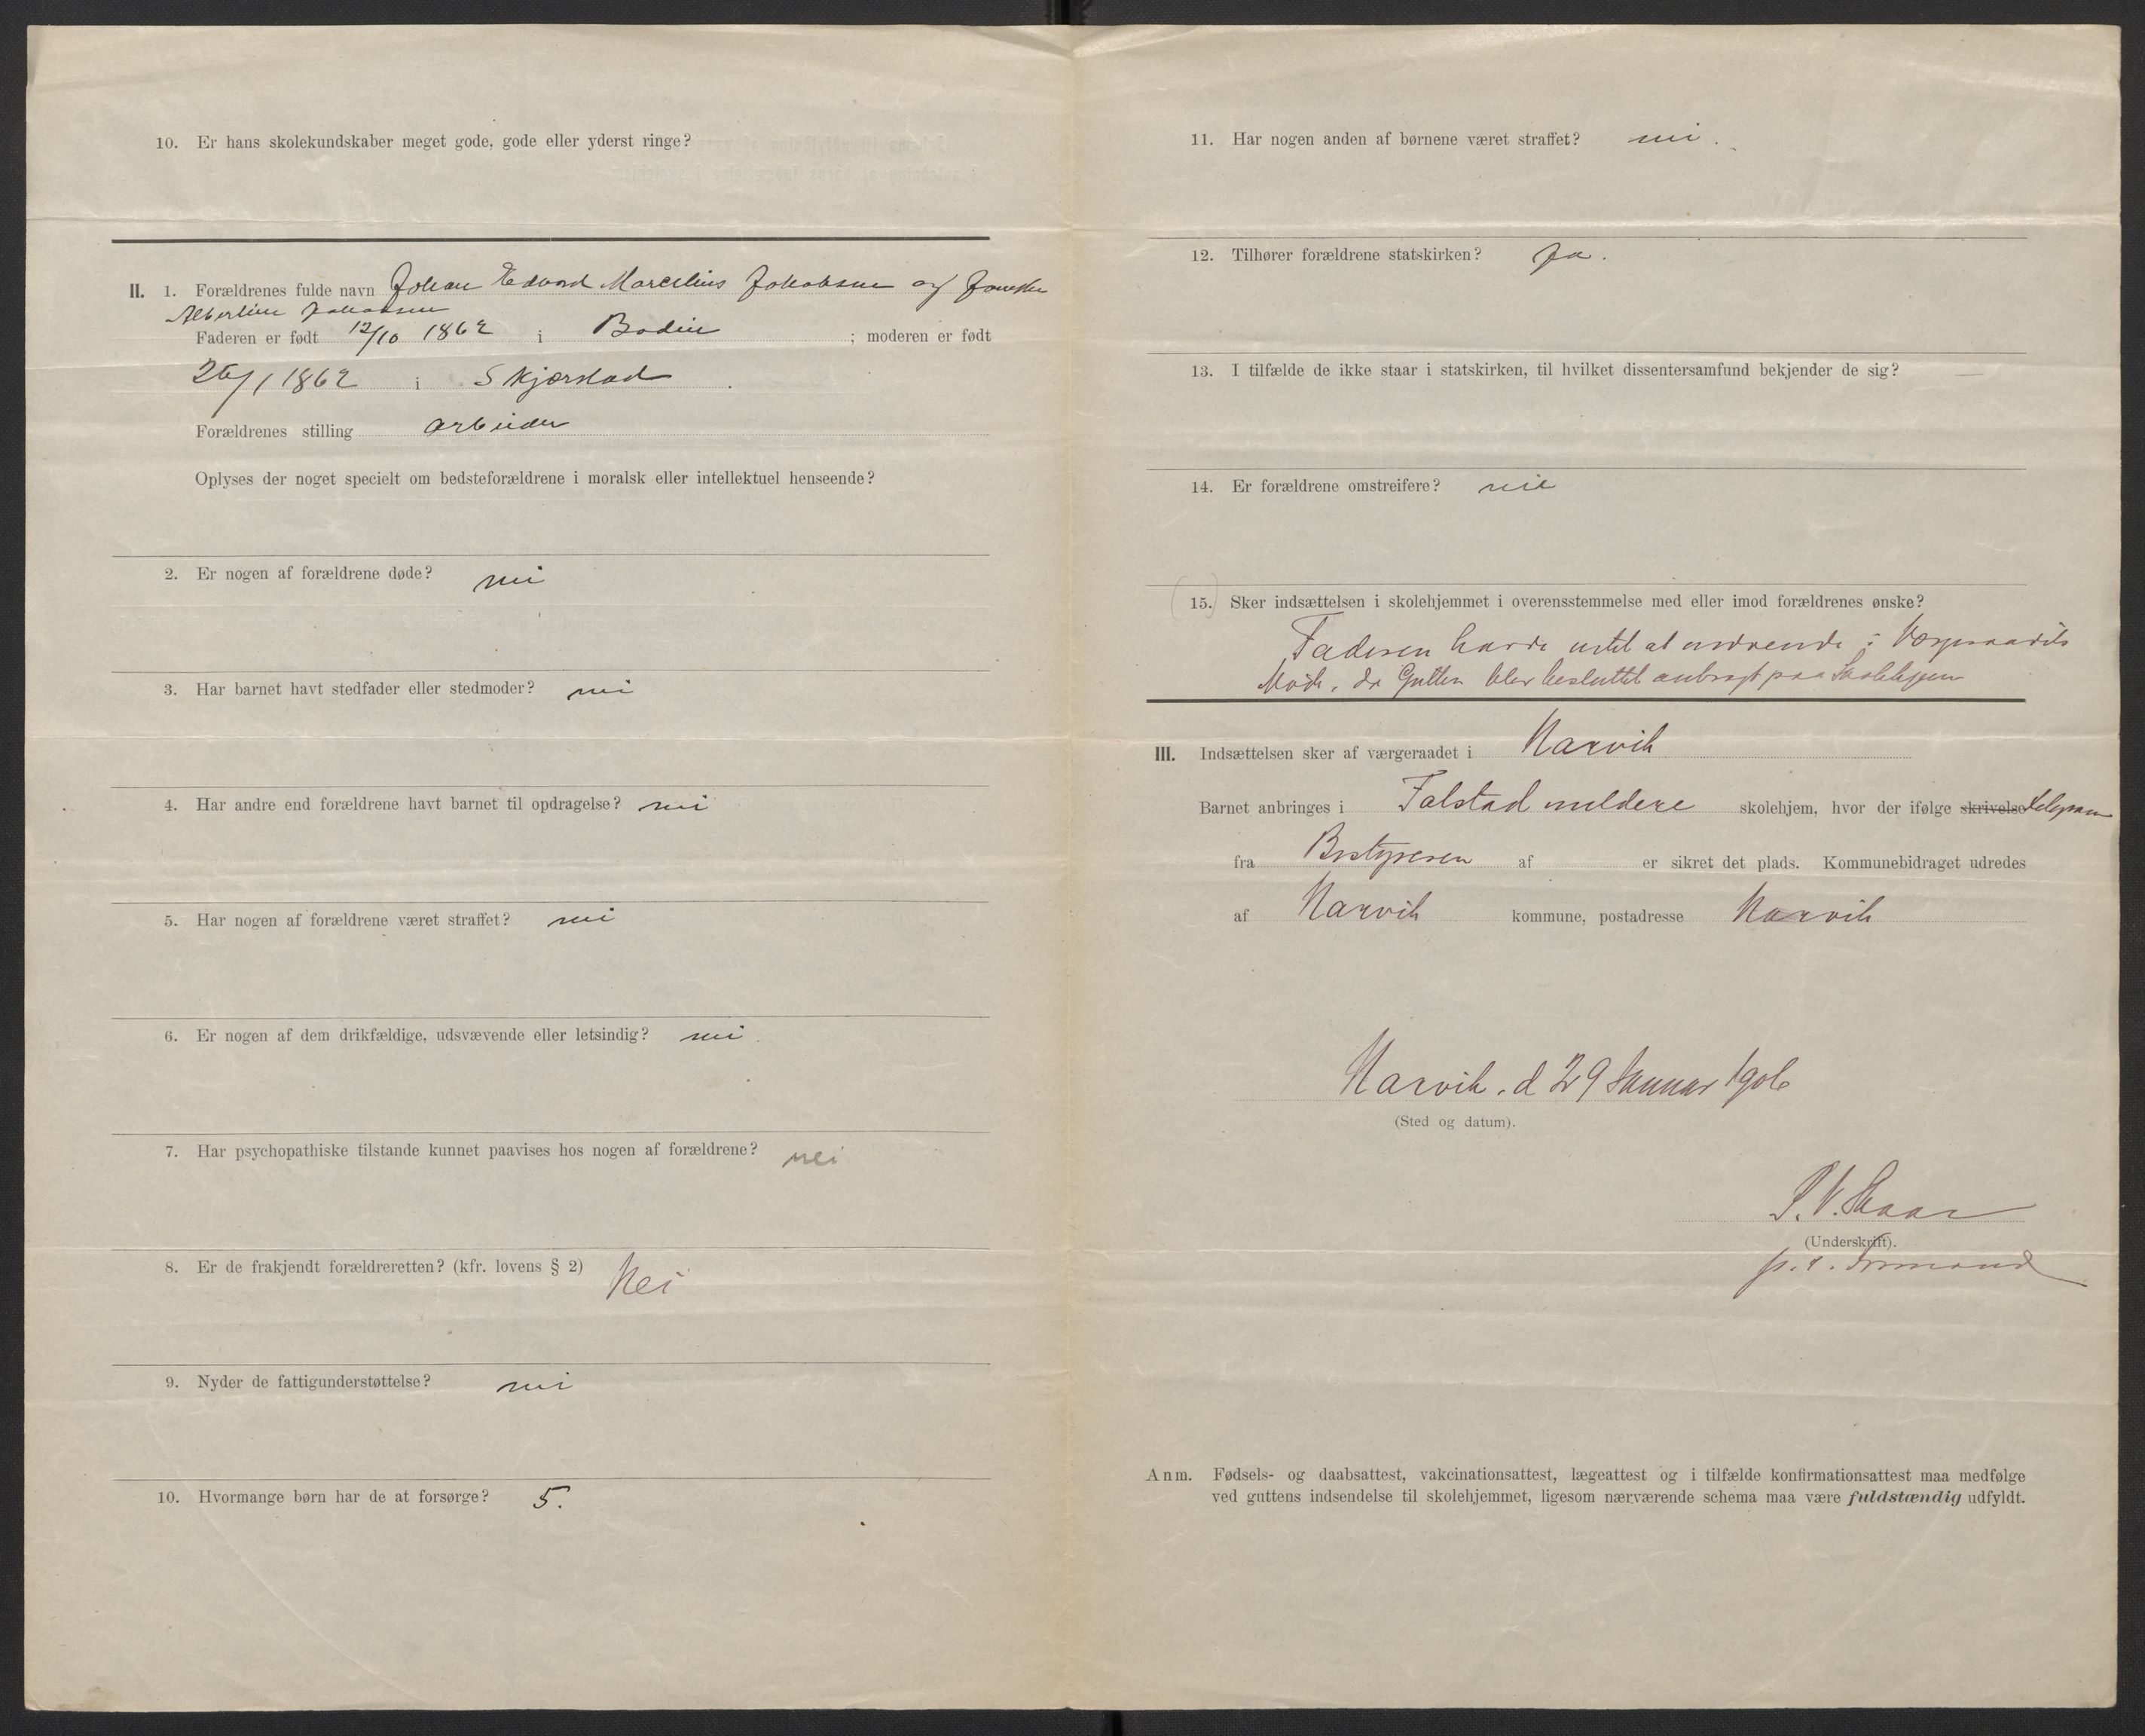 10. Er hans skolekundskaber meget gode, gode eller yderst ringe?
II. 1. Forældrenes fulde navn Johan Edvard Marcelius Jakobsen og
Albertine Jakobsen
Faderen er født 12/10 1862 i Bodin ; moderen er født
26/1 1862 i Skjerstad.
Forældrenes stilling arbeider
Oplyses der noget specielt om bedsteforældrene i moralsk eller intellektuel henseende?
2. Er nogen af forældrene døde? nei
3. Har barnet havt stedfader eller stedmoder? nei
4. Har andre end forældrene havt barnet til opdragelse? nei
5. Har nogen af forældrene været straffet? nei
6. Er nogen af dem drikfældige, udsvævende eller letsindig? nei.
7. Har psychopathiske tilstande kunnet paavises hos nogen af forældrene? nei
8. Er de frakjendt forældreretten? (kfr. lovens § 2) Nei
9. Nyder de fattigunderstøttelse? nei
10. Hvormange børn har de at forsørge? 5.
11. Har nogen anden af børnene været straffet? nei.
12. Tilhører forældrene statskirken? Ja.
13. I tilfælde de ikke staar i statskirken, til hvilket dissentersamfund bekjender de sig? —
14. Er forældrene omstreifere? nei
(15.) Sker indsættelsen i skolehjemmet i overensstemmelse med eller imod forældrenes ønske?
Faderen havde intet at indvende i Værgeraadets
Møde, da Gutten blev besluttet anbragt paa Skolehjem
III. Indsættelsen sker af værgeraadet i Narvik
Barnet anbringes i Falstad skolehjem, hvor der ifølge skrivelse telegram
fra Bestyreren af er sikret det plads. Kommunebidraget udredes
af Narvik kommune, postadresse Narvik
Narvik. d 29 Januar 1906
(Sted og datum).
P. V. Skaar
(Underskrift).
p. t. Formand
Anm. Fødsels- og daabsattest, vakcinationsattest, lægeattest og i tilfælde konfirmationsattest maa medfølge
ved guttens indsendelse til skolehjemmet, ligesom nærværende schema maa være fuldstændig udfyldt.